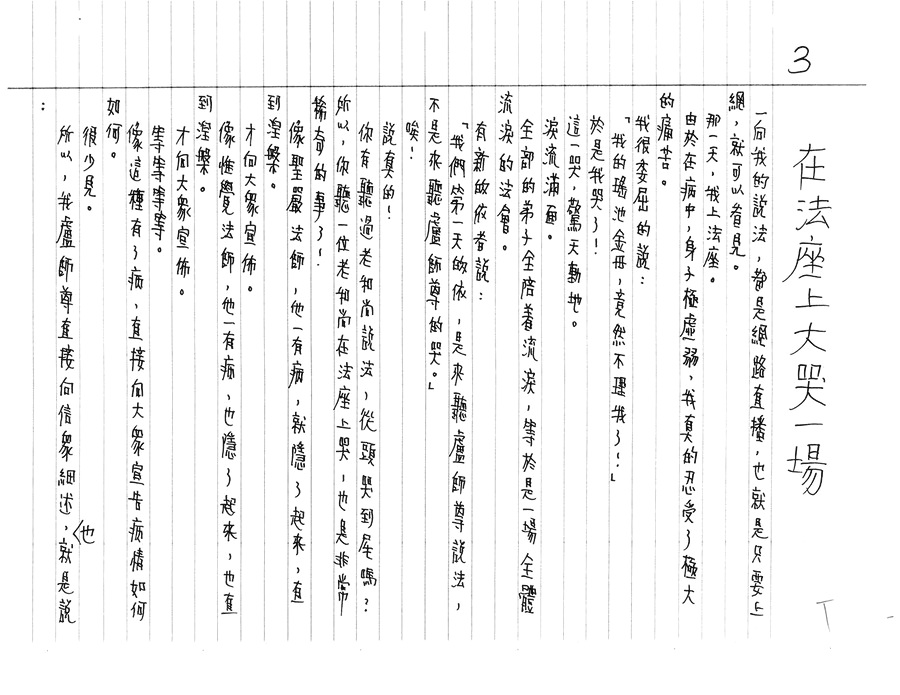 3
在法座上大哭一場
一向我的說法，都是網路直播，也就是只要上
網，就可以看見。
那一天，我上法座。
由於在病中，身子極虛弱，我真的忍受了極大
的痛苦。
我很委屈的說：
「我的瑤池金母，竟然不理我了！」
於是我哭了！
這一哭，驚天動地。
淚流滿面。
全部的弟子全陪着流淚，等於是一場全體
流淚的法會。
有新皈依者說：
「我們第一天皈依，是來聽盧師尊說法，
不是來聽盧師尊的哭。」
唉！
說真的！
你有聽過老和尚說法，從頭哭到尾嗎？
所以，你聽一位老和尚在法座上哭，也是非常
稀奇的事了！
像聖嚴法師，他一有病，就隱了起來，直
到涅槃。
才向大眾宣佈。
像惟覺法師，他一有病，也隱了起來，也直
到涅槃。
才向大眾宣佈。
等等等等。
像這種有了病，直接向大眾宣告病情如何
如何。
很少見。
所以，我盧師尊直接向信眾細述，也就是說
：